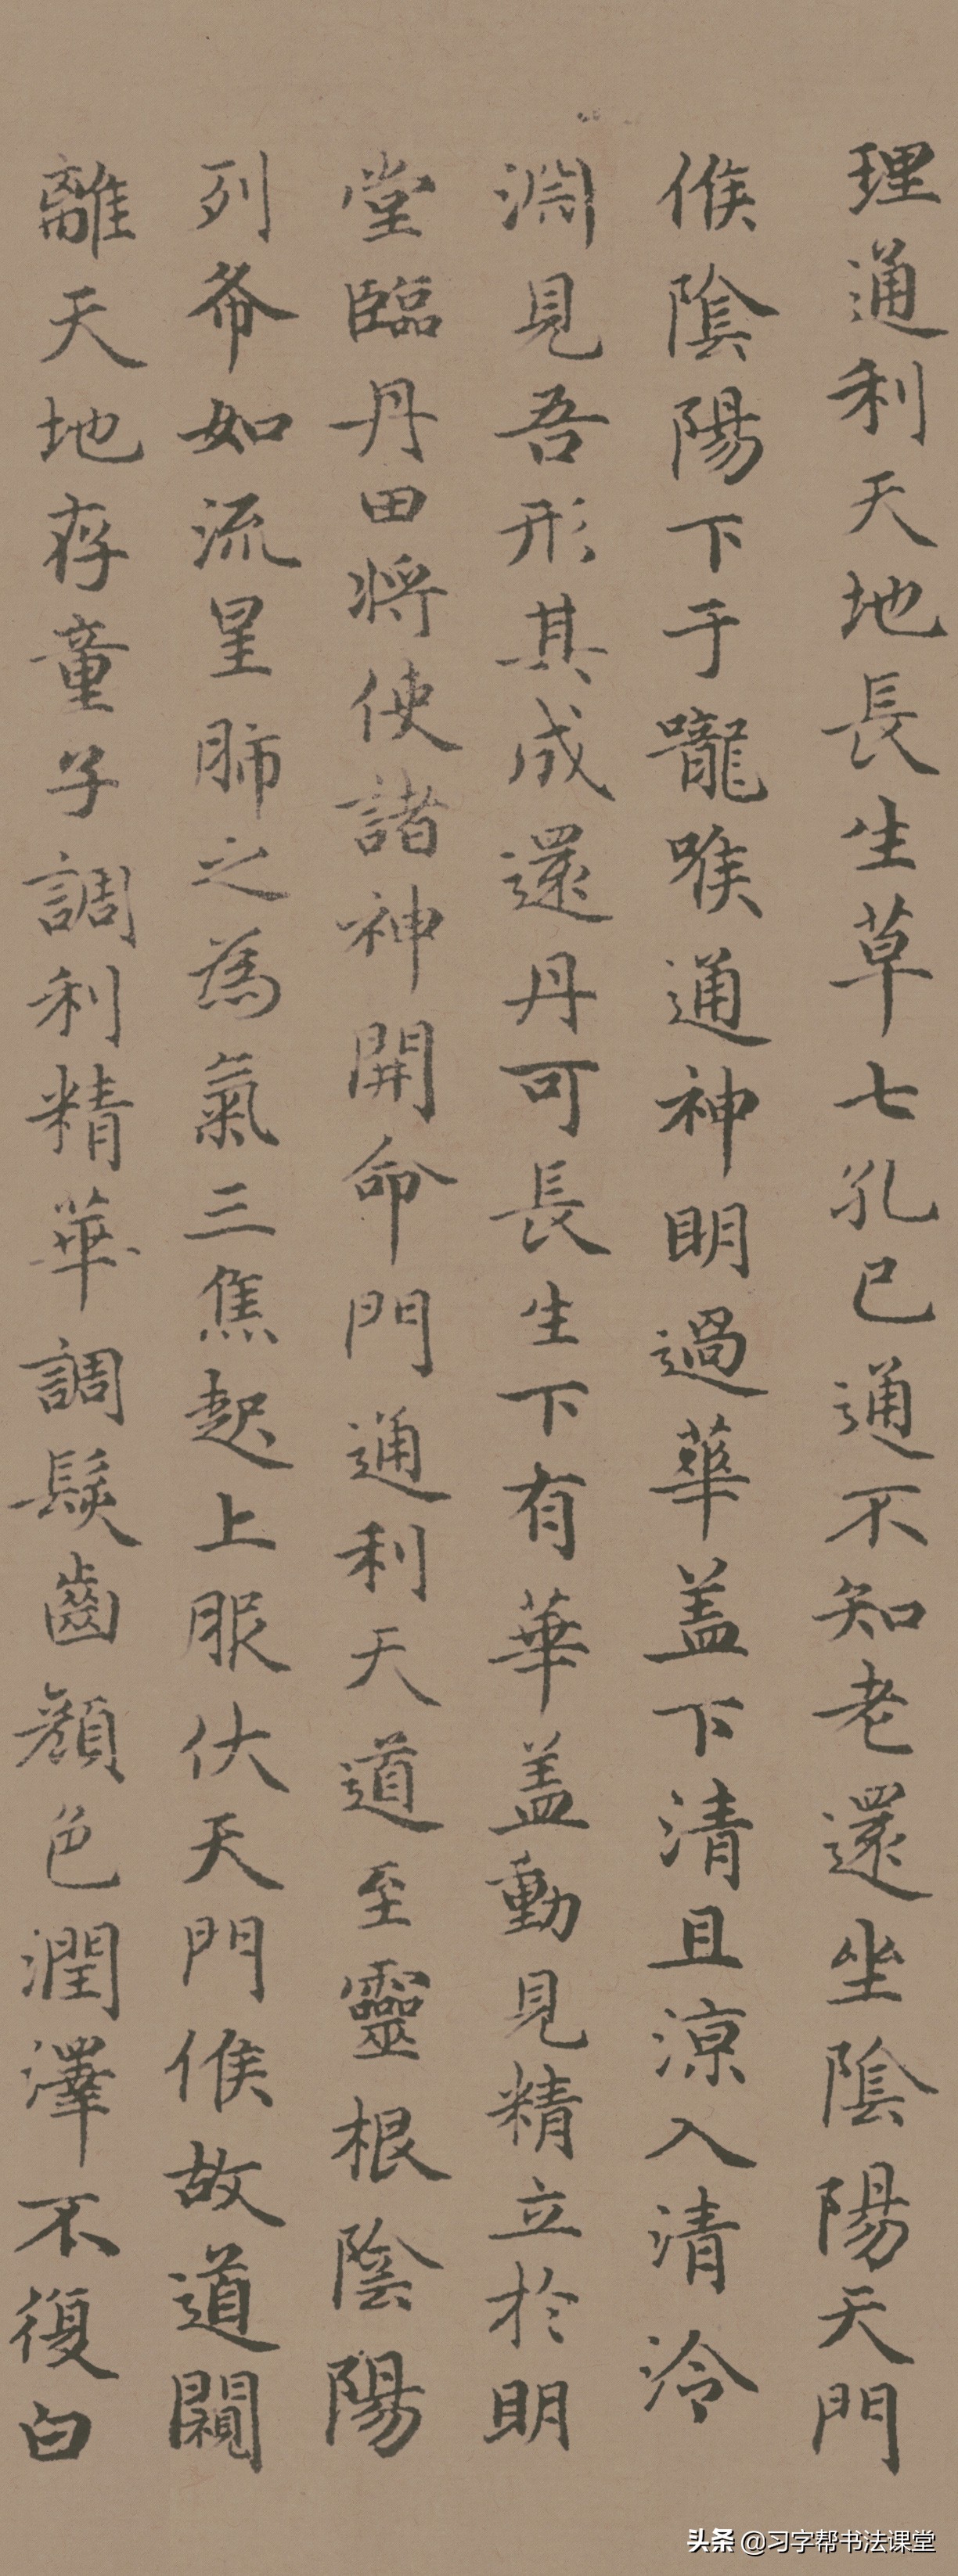 理通利天地長生草七孔已通不知老還坐陰陽天門
候陰陽下于嚨喉通神明過華蓋下清且涼入清泠
淵見吾形其成還丹可長生下有華蓋動見精立於明
堂臨丹田將使諸神開命門通利天道至靈根陰陽
列布如流星肺之為氣三焦起上服伏天門候故道闚
離天地存童子調利精華調髮齒顏色潤澤不復白
头条 @习字帮书法课堂